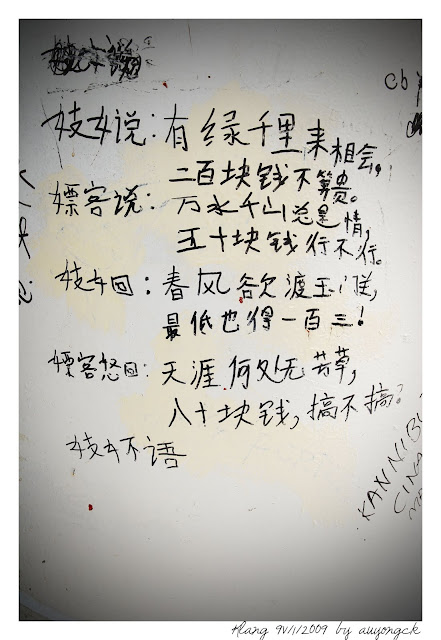 cb
妓女说：有绿千里来相会，
二百块钱不算贵。
嫖客说：万水千山总是情，
五十块钱行不行。
妓女回：春风欲渡玉门关，
最低也得一百三！
嫖客悠回：天涯何处无芳草，
八十块钱，搞不搞？
妓女不语
KANNIB
CINA
Klang 9/1/2009 by auyongck